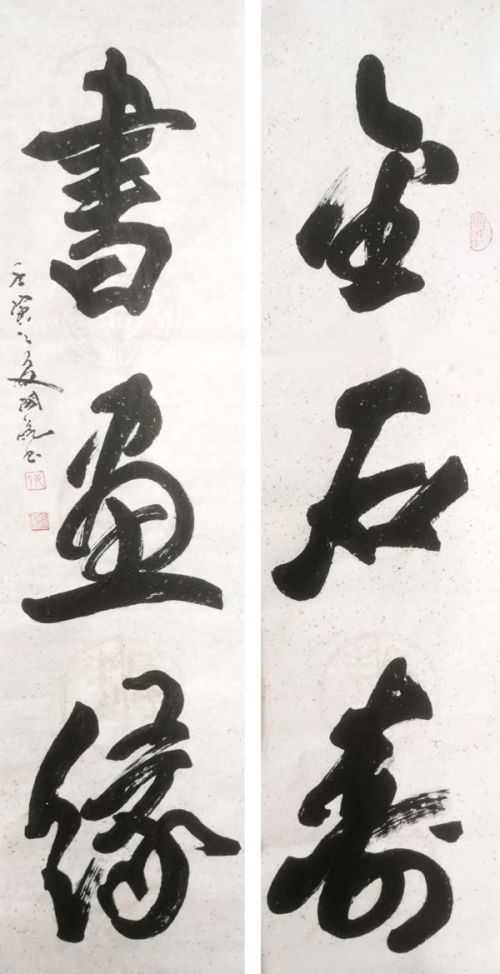 金石寿
書画缘